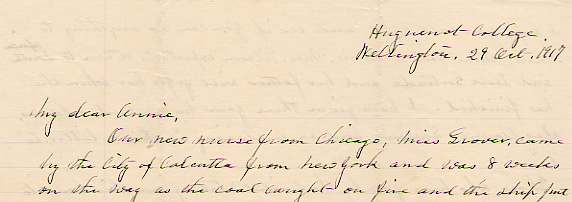 Huguenot College
Wellington, 29 Oct. 1917
My dear Annie,
Our new nurse from Chicago, Miss Grover, came
by the City of Calcutta from New York and was 8 weeks
on the way as the coal caught on fire and the ship put